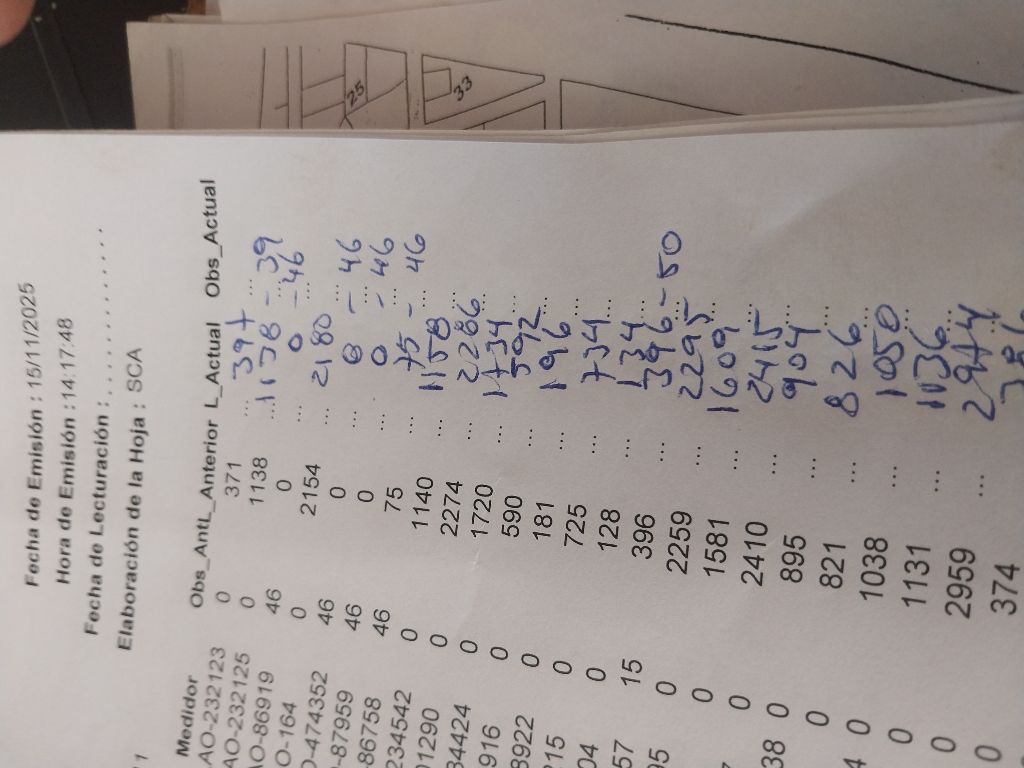 25
33
Fecha de Emisión : 15/11/2025
Hora de Emisión : 14:17:48
Fecha de Lecturación : . . . . . . . . . . . . . . . .
Elaboración de la Hoja : SCA
1
Medidor Obs_AntL_Anterior L_Actual Obs_Actual
AO-232123 0 371 ... 397 ...
AO-232125 0 1138 ... 1138 - 39
AO-86919 46 0 ... 0 - 46
O-164 0 2154 ... 2180 ...
O-474352 46 0 ... 0 - 46
-87959 46 0 ... 0 - 46
86758 46 75 ... 75 - 46
234542 0 1140 ... 1158 ...
01290 0 2274 ... 2286 ...
34424 0 1720 ... 1734 ...
916 0 590 ... 592 ...
8922 0 181 ... 196 ...
15 0 725 ... 734 ...
04 0 128 ... 134 ...
57 15 396 ... 396 - 50
95 0 2259 ... 2295 ...
0 1581 ... 1609 ...
0 2410 ... 2415 ...
38 0 895 ... 904 ...
0 821 ... 826 ...
4 0 1038 ... 1050
0 1131 ... 1136
0 2959 ...
0 374